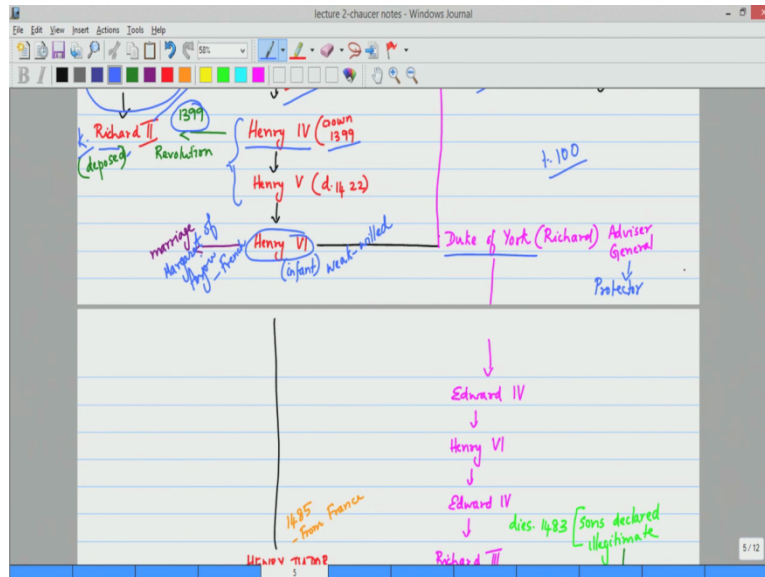 lecture 2-chaucer notes - Windows Journal
File Edit View Insert Actions Tools Help
58%
B I
1399
k. Richard II
(deposed)
Revolution
Henry IV (Down
1399
Henry V (d. 1422)
t.100
marriage
Margaret of
Anjou - French
Henry VI
(infant) weak-willed
Duke of York (Richard) Adviser
General
Protector
Edward IV
Henry VI
Edward IV
dies. 1483 [sons declared
illegitimate
1485
- From France
HENRY TUDOR
Richard III
5/12
5